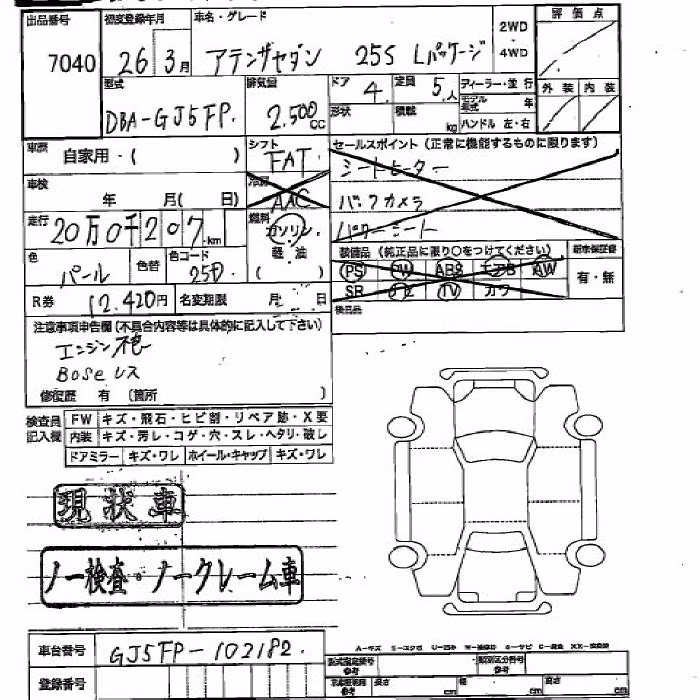 出品番号 初度登録年月 車名・グレード 2WD・4WD 評価点
7040 26 3月 アテンザセダン 25S Lパッケージ
型式 排気量 ドア 4 定員 5人 ディーラー・並行 外装 内装
DBA-GJ5FP. 2.500cc 形状 積載 kg モデル年式 年
ハンドル 左・右
車歴 自家用・( ) シフト FAT セールスポイント (正常に機能するものに限ります)
シートヒーター
車検 年 月( 日) 冷房 AAC バックカメラ
走行 20万0千207km 燃料 ガソリン 軽油 ( ) パワーシート
色 パール 色替 色コード 25D 装備品 (純正品に限り○をつけてください) 新車保証書
PS PW ABS エアB AW 有・無
R券 12.420円 名変期限 月 日 SR ナビ TV カワ
検品品
注意事項申告欄(不具合内容等は具体的に記入して下さい)
エンジン
BOSEレス
修復歴 有 (箇所 )
検査員記入欄 FW キズ・飛石・ヒビ割・リペア跡・X要
内装 キズ・汚レ・コゲ・穴・スレ・ヘタリ・破レ
ドアミラー キズ・ワレ ホイール・キャップ キズ・ワレ
現状車
ノー検査・ノークレーム車
車台番号 GJ5FP-102182.
型式指定番号 類別区分番号
参考 参考
登録番号 長さ cm 幅 cm 高さ cm